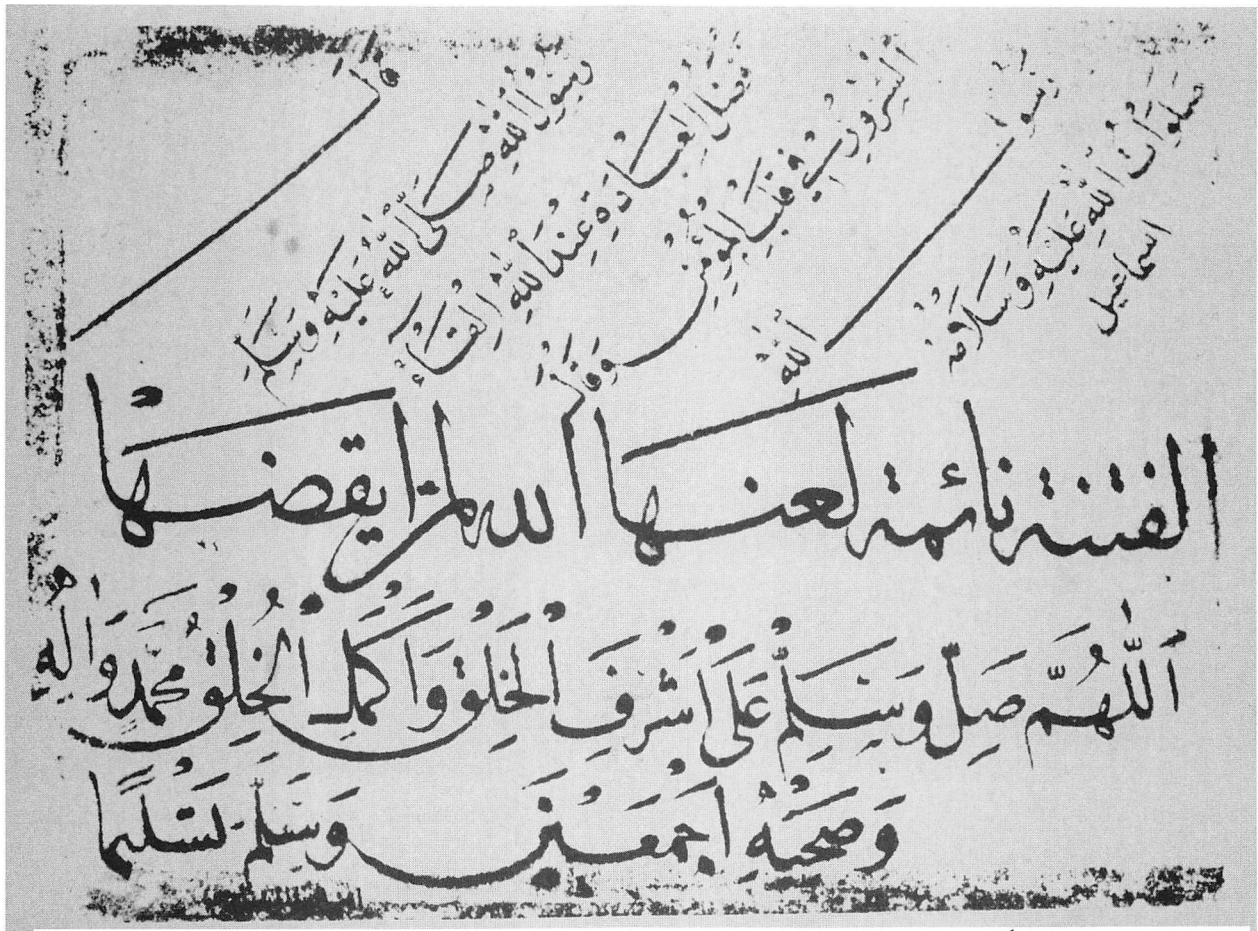 قال
رسول الله صلى الله عليه وسلم
العبادة عند الله
السرور في قلب المؤمن
وقال
رسول
الله
صلوات الله عليه وسلامه
اسماعيل
الفتنة نائمة لعنها الله لمن ايقضها
اللهم صل وسلم على أشرف الخلق وأكمل الخلق محمد وآله
وصحبه أجمعين وسلم تسليما